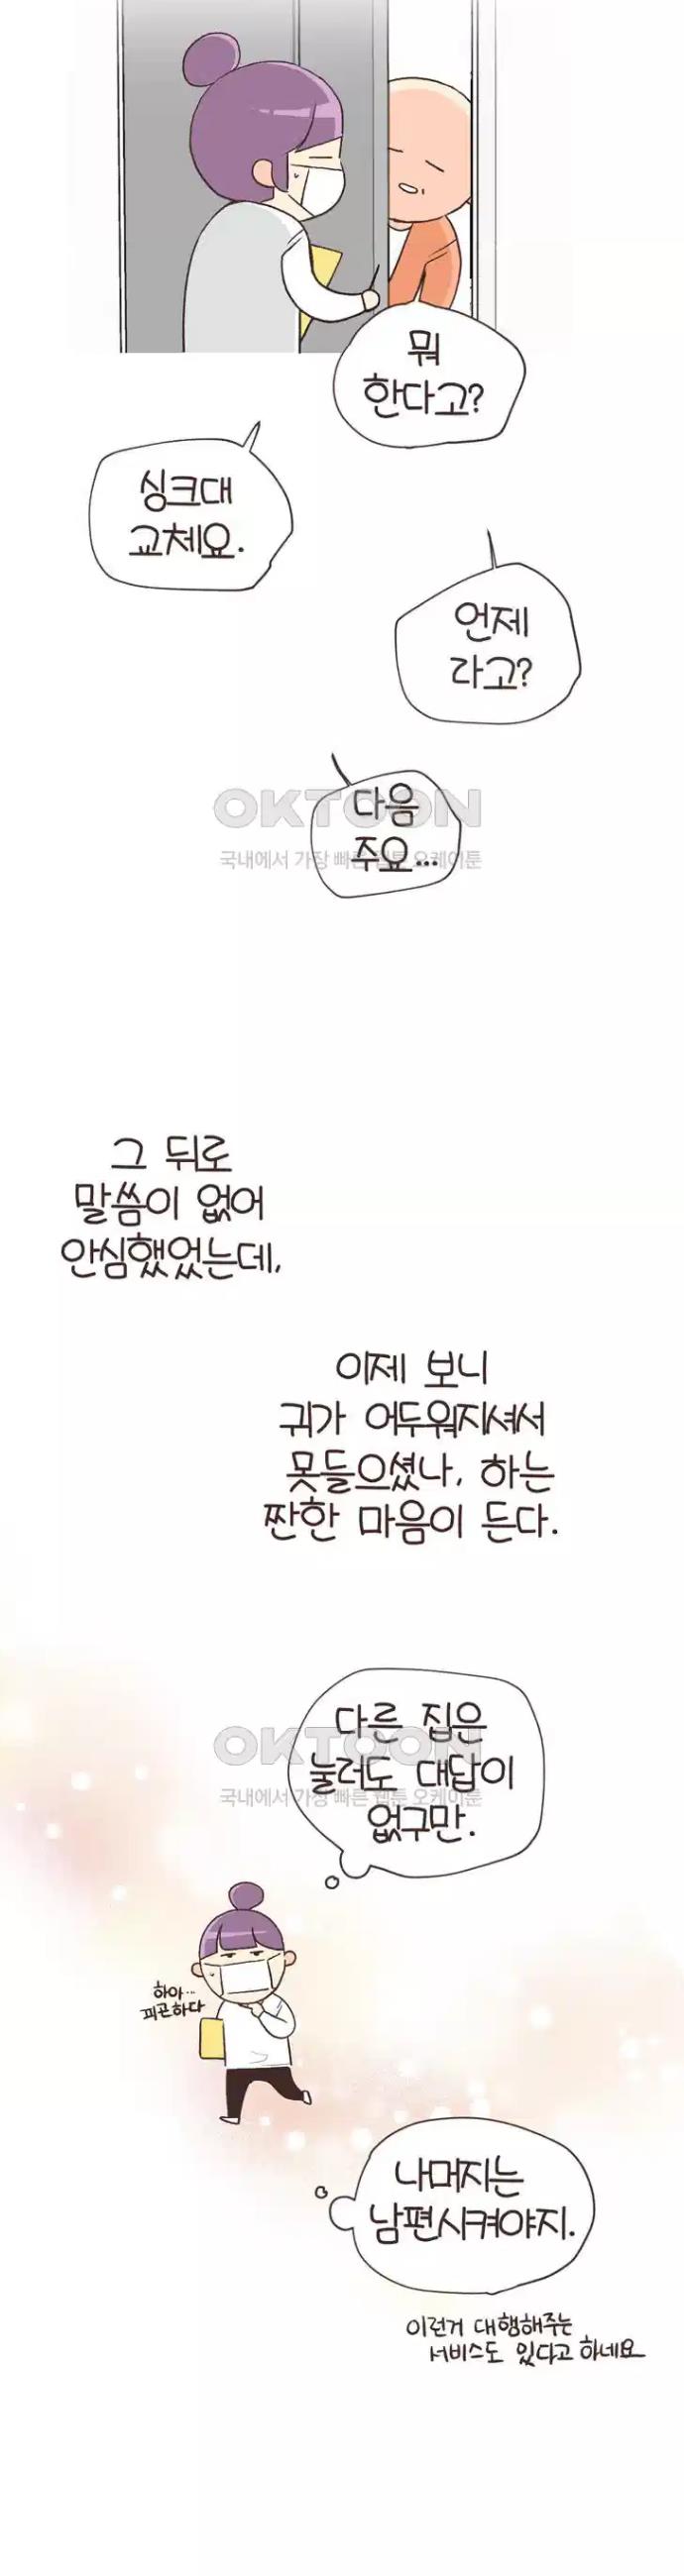 뭐
한다고?
싱크대
교체요.
언제
라고?
OKTOON
다음
국내에서 가장 빠른 웹툰 오케이툰
주요...
그 뒤로
말씀이 없어
안심했었는데,
이제 보니
귀가 어두워지셔서
못들으셨나, 하는
짠한 마음이 든다.
다른 집은
OKTOON
눌러도 대답이
국내에서 가장 빠른 웹툰 오케이툰
없구만.
하아...
피곤하다
나머지는
남편시켜야지.
이런거 대행해주는
서비스도 있다고 하네요